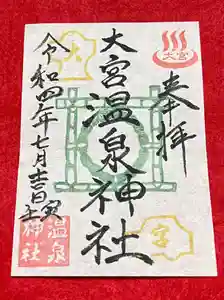 大宮
奉拝
大宮温泉神社
令和四年七月吉日
大
宮
温泉
神社